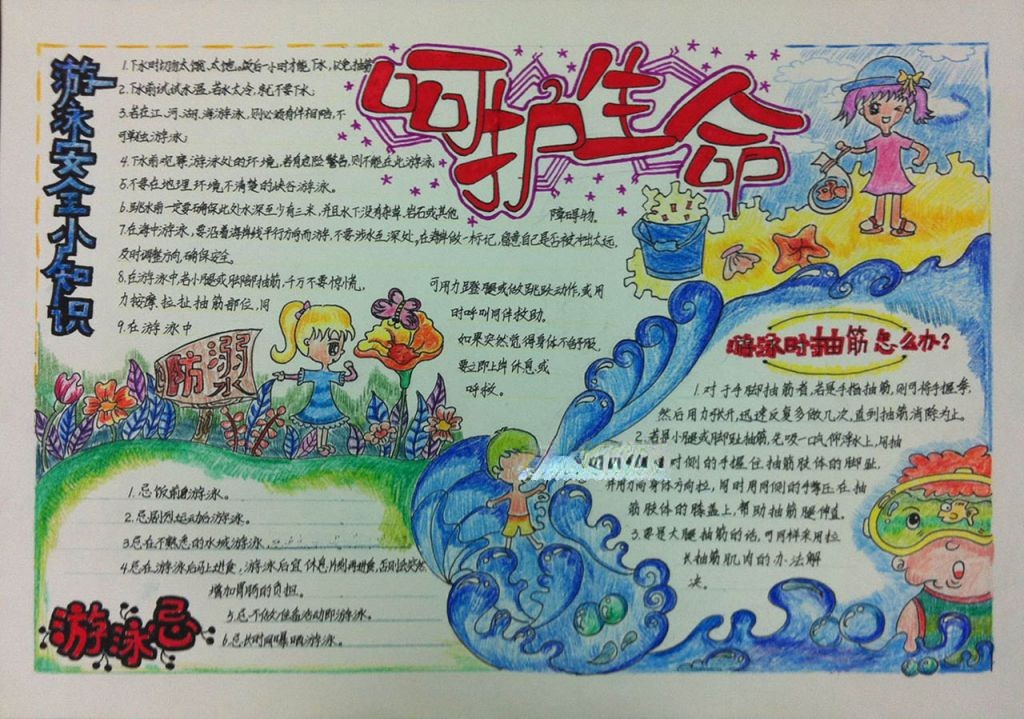 呵护生命
游泳安全小知识
1.下水时切勿太饿、太饱。饭后一小时才能下水,以免抽筋
2.下水前试试水温,若水太冷,就不要下水;
3.若在江、河、湖、海游泳,则必须有伴相陪,不
可单独游泳;
4.下水前观察游泳处的环境,若有危险警告,则不能在此游泳;
5.不要在地理环境不清楚的峡谷游泳。
6.跳水前一定要确保此处水深至少有三米,并且水下没有杂草、岩石或其他 障碍物
7.在海中游泳,要沿着海岸线平行方向而游,不要涉水至深处,在海岸做一标记,留意自己是否被冲出太远,
及时调整方向,确保安全。
8.在游泳中,若小腿或脚部抽筋,千万不要惊慌, 可用力蹬腿或做跳跃动作,或用
力按摩、拉扯抽筋部位,同 时呼叫同伴救助。
9.在游泳中 如果突然觉得身体不舒服,
要立即上岸休息或
呼救。
防溺
游泳时抽筋怎么办?
1.对于手脚抽筋者,若是手指抽筋,则可将手握拳,
然后用力张开,迅速反复多做几次,直到抽筋消除为止。
2.若是小腿或脚趾抽筋,先吸一口气仰浮水上,用抽
对侧的手握住抽筋肢体的脚趾,
并用力向身体方向拉,同时用同侧的手掌压在抽
筋肢体的膝盖上,帮助抽筋腿伸直。
3.要是大腿抽筋的话,可同样采用拉
长抽筋肌肉的办法解
决。
1.忌饭前后游泳。
2.忌剧烈运动后游泳。
3.忌在不熟悉的水域游泳
4.忌在游泳后马上进食,游泳后宜休息片刻再进食,否则会突然
增加胃肠的负担。
5.忌不做准备活动即游泳。
6.忌长时间曝晒游泳。
游泳忌